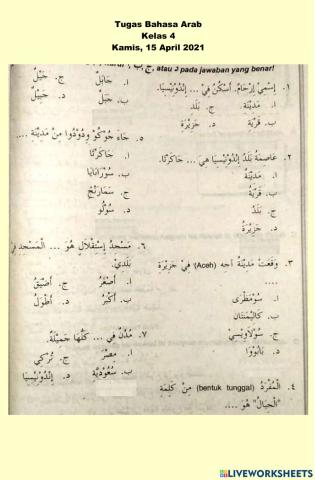 Tugas Bahasa Arab
Kelas 4
Kamis, 15 April 2021
atau د pada jawaban yang benar!
١. إِسْمِيْ إِرْحَامْ. أَسْكُنُ فِيْ ... إِنْدُوْنِيْسِيَا.
ا. مَدِيْنَةِ
ج. بَلَد
ب. قَرْيَة
د. جَزِيْرَة
٢. عَاصِمَةُ بَلَدُ إِنْدُوْنِيْسِيَا هِيَ ... جَاكَرْتَا.
ا. مَدِيْنَةُ
ب. قَرْيَةُ
ج. بَلَدُ
د. جَزِيْرَةُ
٣. وَقَعَتْ مَدِيْنَةُ أجه (Aceh) فِيْ جَزِيْرَة
....
ا. سُوْمَطْرَى
ب. كَالِيْمَنْتَان
ج. سُوْلَاوِيْسِيْ
د. بَابُوْوَا
٤. اَلْمُفْرَدُ (bentuk tunggal) مِنْ كَلِمَةِ
"اَلْجِبَالُ" هُوَ ....
ا. جَابَلٌ
ج. جَبَيْلٌ
ب. جَبَلٌ
د. جَبِيْلٌ
٥. جَاءَ جُوْكُوْ وَدُوْدُوْا مِنْ مَدِيْنَة ....
ا. جَاكَرْتَا
ب. سُوْرَابَايَا
ج. سَمَارَنْج
د. سُوْلُو
٦. مَسْجِدُ إِسْتِقْلَالِ هُوَ ... اَلْمَسْجِدِ فِيْ
بَلَدِيْ.
ا. أَصْغَرُ
ج. أَضْيَقُ
ب. أَكْبَرُ
د. أَطْوَلُ
٧. مُدُنٌ فِيْ ... كُلُّهَا جَمِيْلَةٌ.
ا. مِصْرَ
ج. تُرْكِي
ب. سُعُوْدِيَّة
د. إِنْدُوْنِيْسِيَا
LIVEWORKSHEETS